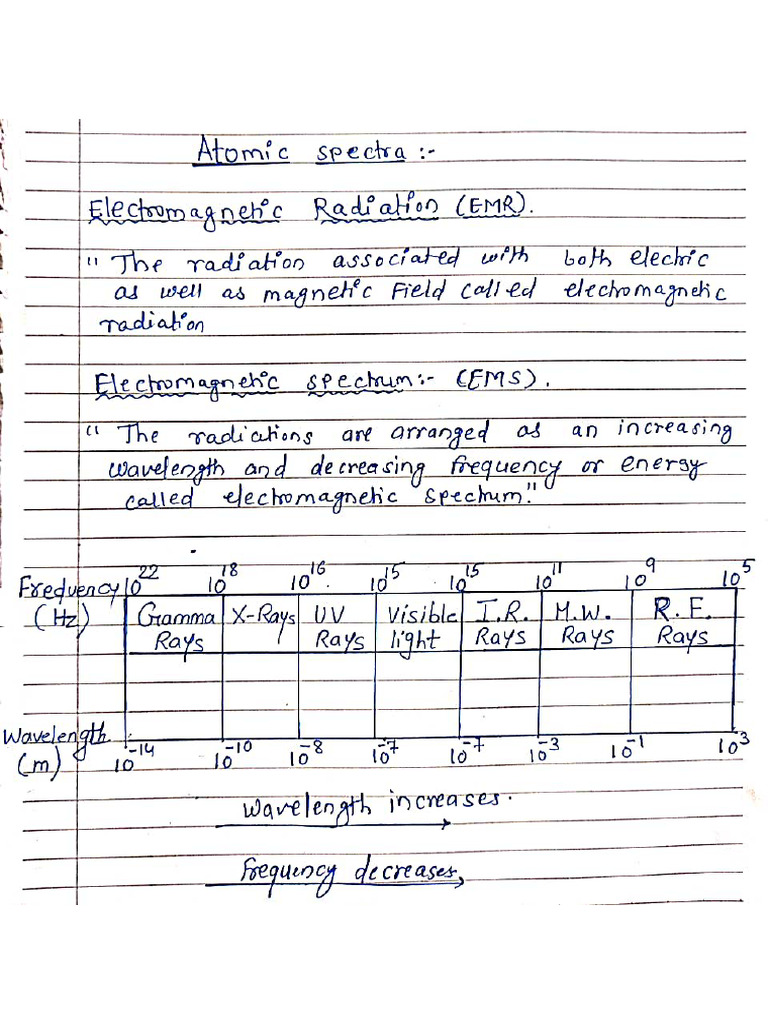 Atomic spectra :-
Electromagnetic Radiation (EMR).
" The radiation associated with both electric
as well as magnetic Field called electromagnetic
radiation
Electromagnetic spectrum:- (EMS).
" The radiations are arranged as an increasing
wavelength and decreasing frequency or energy
called electromagnetic spectrum."
Frequency 10²² 10¹⁸ 10¹⁶ 10¹⁵ 10¹⁵ 10¹¹ 10⁹ 10⁵
(Hz) Gramma X-Rays UV Visible I.R. M.W. R.F.
Rays Rays light Rays Rays Rays
Wavelength
(m) 10⁻¹⁴ 10⁻¹⁰ 10⁻⁸ 10⁻⁷ 10⁻⁷ 10⁻³ 10⁻¹ 10³
Wavelength increases.
Frequency decreases,